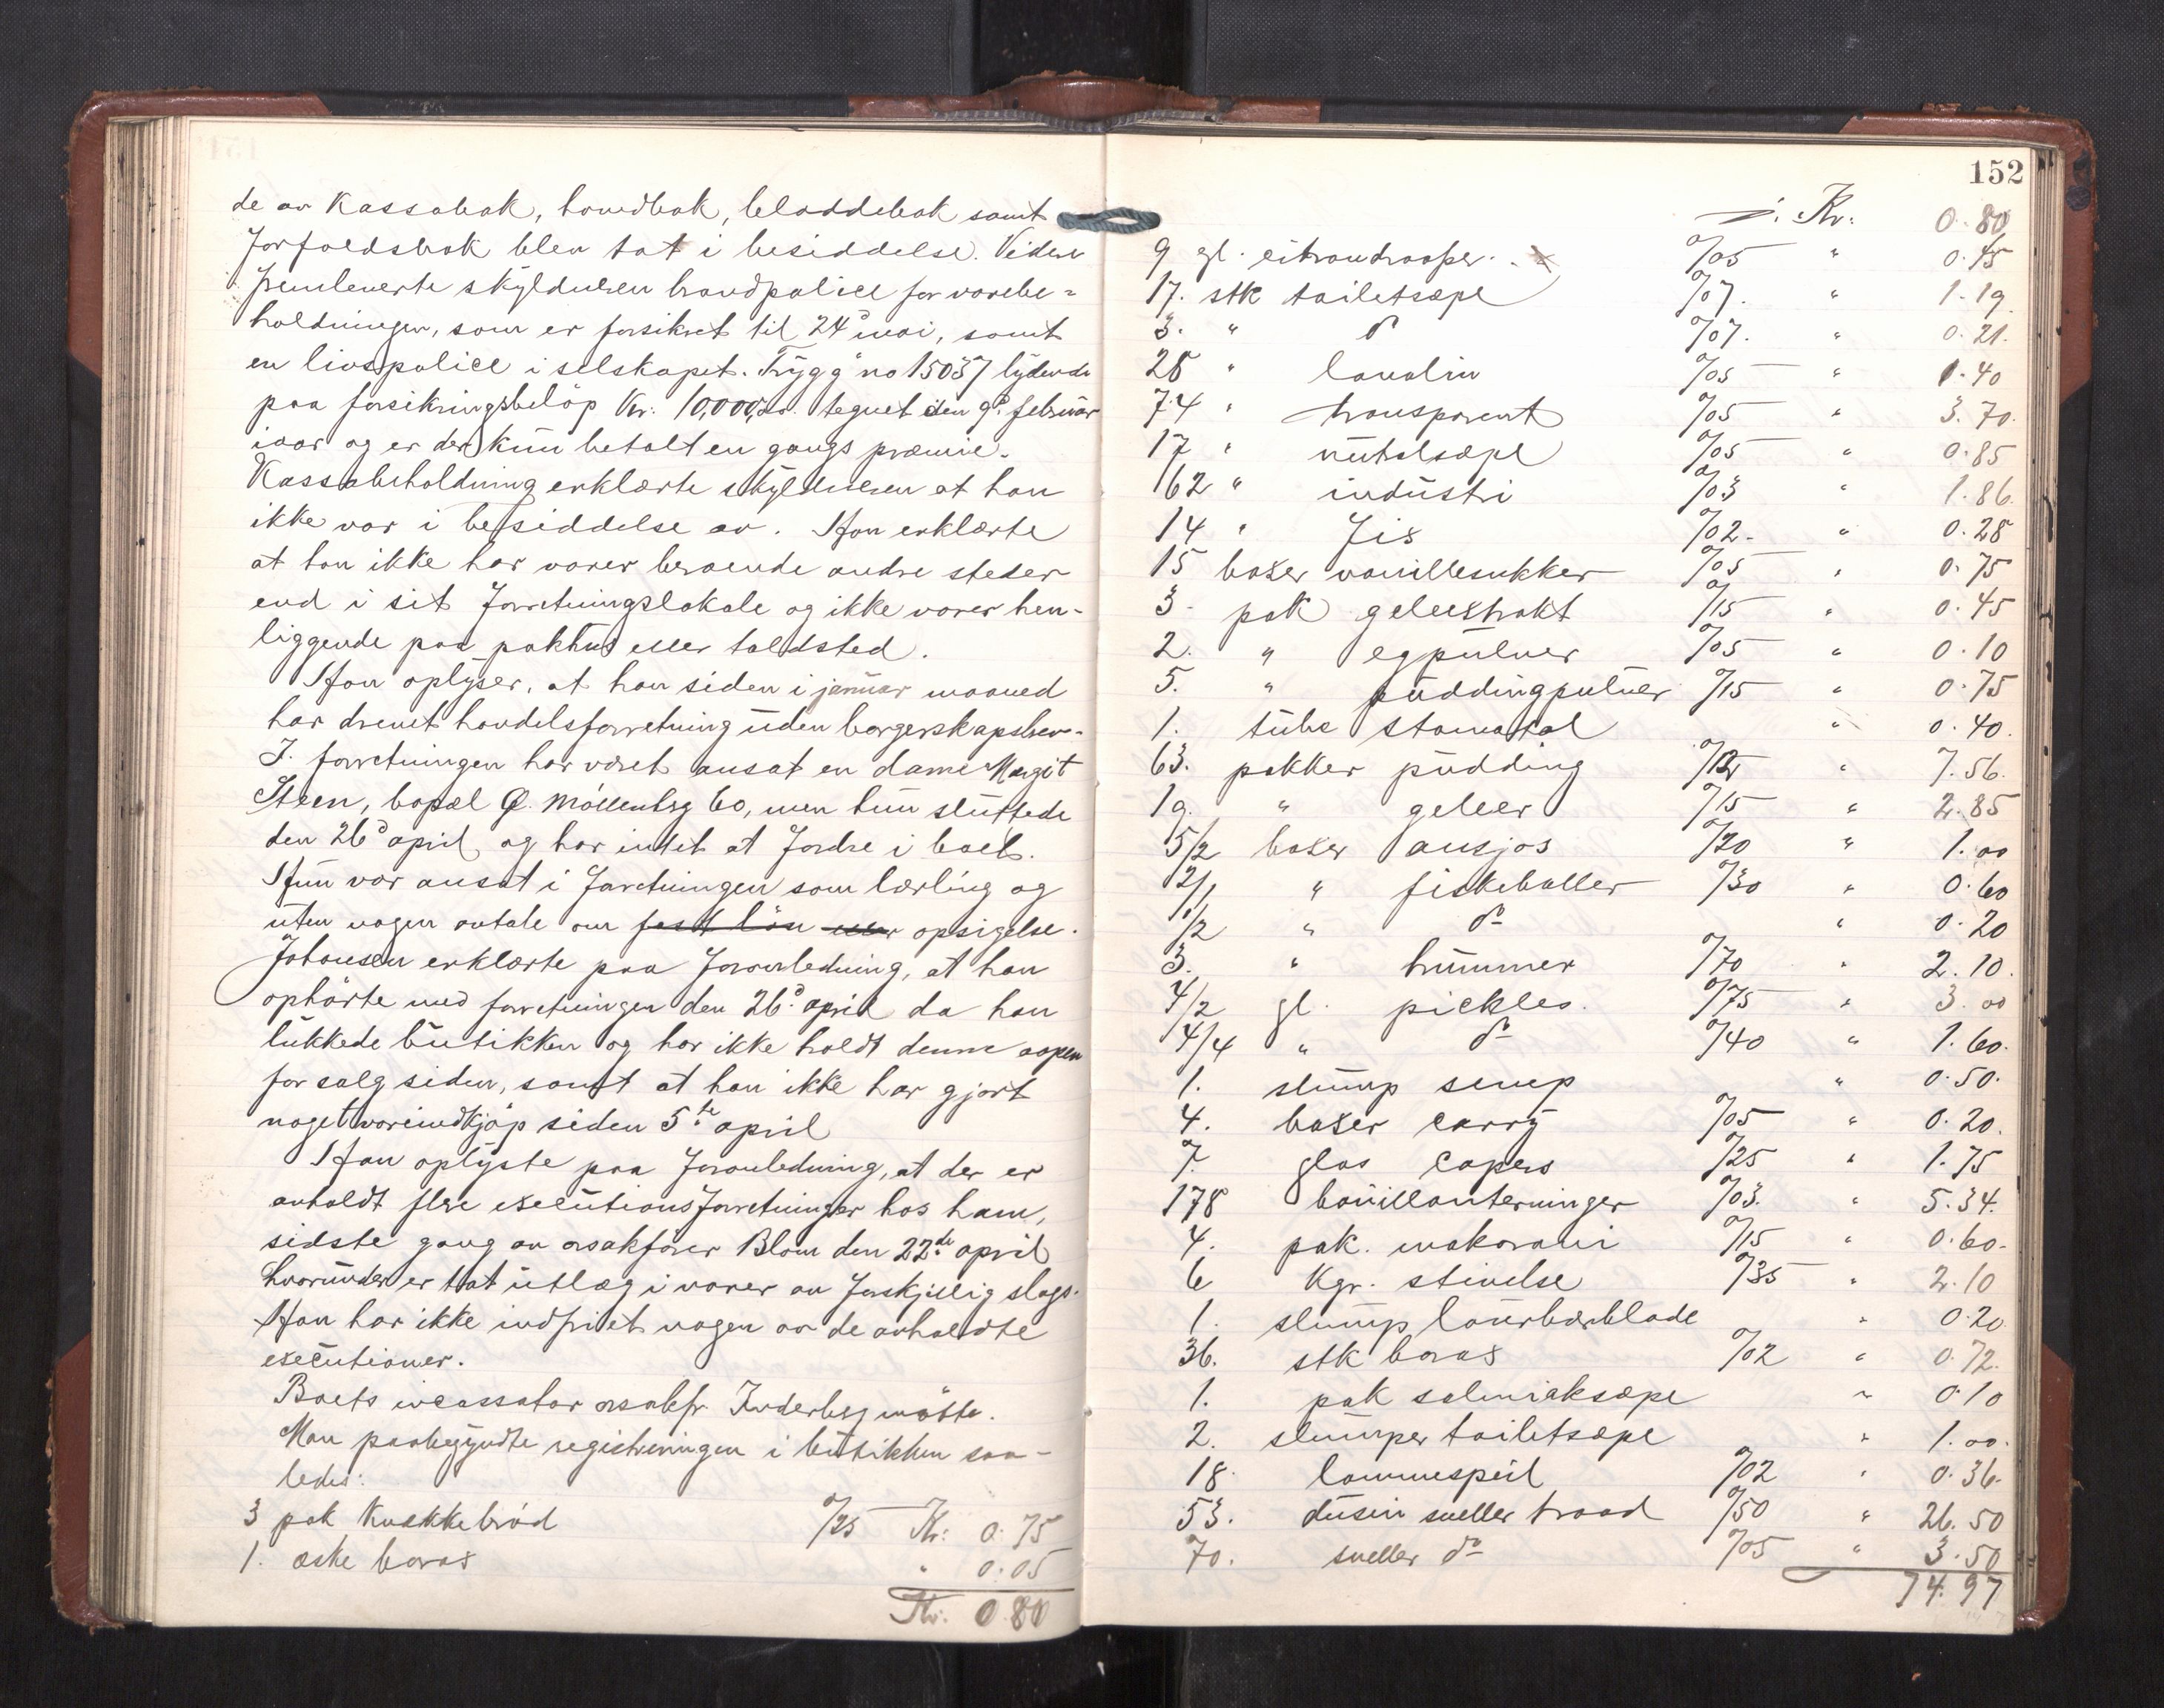 de av Kassabok, hovedbok, kladdebok samt
forfaldsbok blev tat i besiddelse. Videre
fremleverte skyldneren brandpolice for varebe-
holdningen, som er forsikret til 24d mai, samt
en livspolice i selskapet "Trygg" no 15037 lydende
paa forsikringsbeløp Kr: 10,000,00. tegnet den 9d februar
iaar og er der kun betalt en gangs præmie.
Kassabeholdning erklærte skyldneren at han
ikke var i besiddelse av. Han erklærte
at han ikke har varer beroende andre steder
end i sit forretningslokale og ikke varer hen-
liggende paa pakhus eller toldsted.
Han oplyser, at han siden i januar maaned
har drevet handelsforretning uden borgerskapsbrev.
I forretningen har været ansat en dame Margit
Steen, bopæl Ø. Møllenbg 60, men hun sluttede
den 26d april og har intet at fordre i boet.
Hun var ansat i forretningen som lærling og
uten nogen avtale om fast løn eller opsigelse.
Johansen erklærte paa foranledning, at han
ophørte med forretningen den 26d april da han
lukkede butikken og har ikke holdt denne aapen
for salg siden, samt at han ikke har gjort
noget vareindkjøp siden 5te april
Han oplyste paa foranledning, at der er
avholdt flere executionsforretninger hos ham,
sidste gang av osakfører Blom den 22de april
hvorunder er tat utlæg i varer av forskjellig slags.
Han har ikke indfriet nogen av de avholdte
executioner.
Boets incassator osakfr. Inderberg møtte.
Man paabegyndte registreringen i butikken saa-
ledes:
3 pak Knækkebrød o/25 Kr: 0.75
1. æske borax " 0.05
Kr: 0.80
152
Kr: 0.80
9 gl. citrondraaper o/05 " 0.45
17. stk toiletsæpe o/07. " 1.19
3. " do o/07. " 0.21.
28 " lanolin o/05 " 1.40
74 " transparent o/05 " 3.70.
17 " o/05 " 0.85
62 " industri o/03 " 1.86.
14 " Jis o/02 " 0.28
15 bokser vanillesukker o/05 " 0.75
3 pak geleextrakt o/15 " 0.45
2. " egpulver o/05 " 0.10
5. " puddingpulver o/15 " 0.75
1. tube stomatol " 0.40.
63. pakker pudding o/12 " 7.56.
19. " geleer o/15 " 2.85
5/2 bokser ansjos o/20 " 1.00
2/1 " fiskeboller o/30 " 0.60
1/2 " do " 0.20
3. " hummer o/70 " 2.10.
4/2 gl. pickles. o/75 " 3.00
4/4 " do o/40 " 1.60.
1. slump sirup " 0.50.
4. bokser carry o/05 " 0.20.
7. glas capers o/25 " 1.75
178 bouillonterninger o/03. " 5.34.
4. pak. makaroni o/15 " 0.60.
6 Kgr. stivelse o/35 " 2.10
1. slump laurbærblade " 0.20
36. stk borax o/02 " 0.72.
1. pak salmiaksæpe " 0.10
2. slumper toiletsæpe " 1.00.
18. lommespeil o/02 " 0.36.
53. dusin sneller traad o/50 " 26.50
70. sneller do o/05 " 3.50
74.97